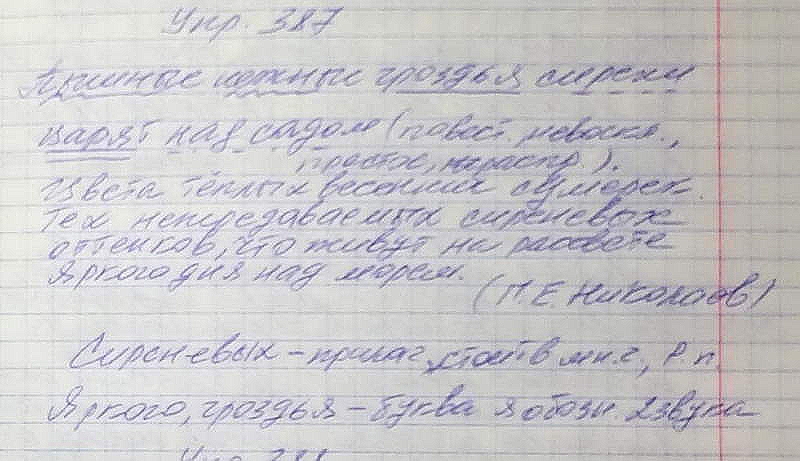 Упр. 387
Пышные нежные гроздья сирени
царят над садом (повест. невоскл.,
простое, нераспр.).
Цвета тёплых весенних сумерек.
Тех непередаваемых сиреневых
оттенков, что живут на рассвете
яркого дня над морем.
(П. Е. Николаев)
Сирен-евых – прилаг, стоит в мн.ч., Р.п.
Яркого, гроздья – буква я обозн. 2 звука
Упр. 388